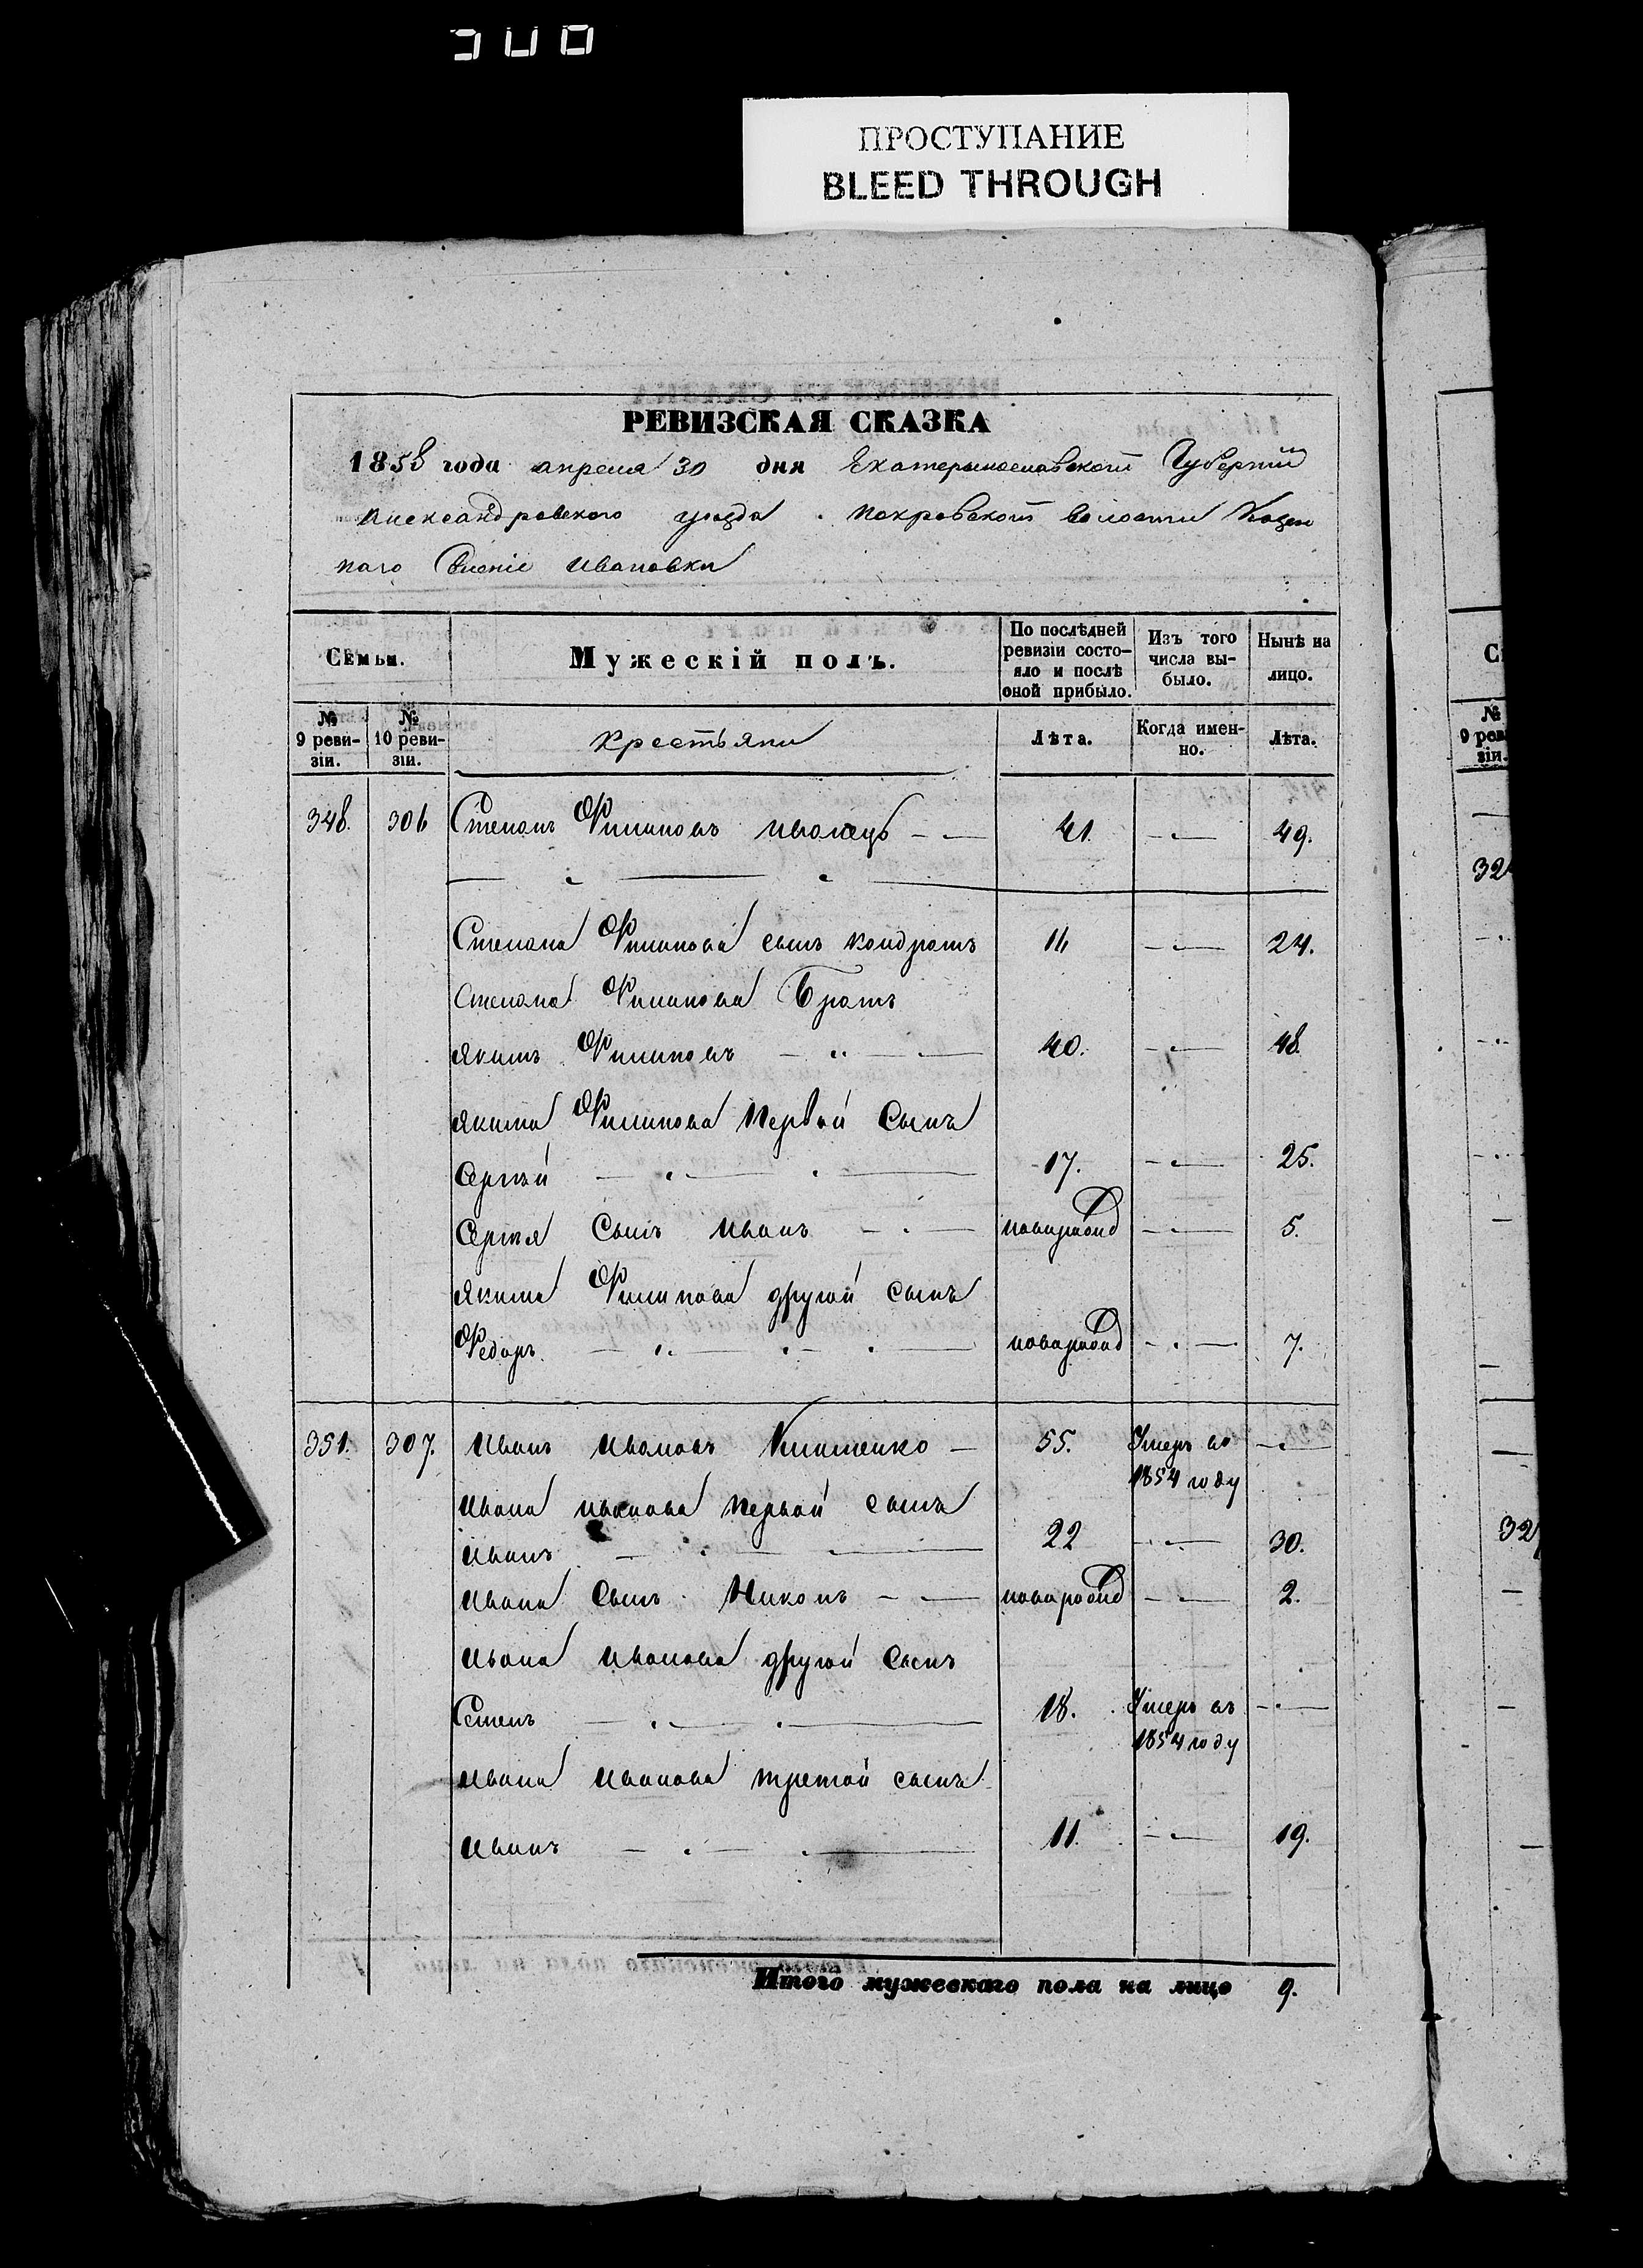 ПРОСТУПАНИЕ
BLEED THROUGH
РЕВИЗСКАЯ СКАЗКА
1858 года апреля 30 дня Екатеринославской Губерніи
Александровского уезда. Покровской волости Казен
наго Селеніе Ивановки
Семьи. Мужескій полъ. По послѣдней ревизіи состо-яло и послѣ оной прибыло. Изъ того числа вы-было. Нынѣ на лицо.
№ 9 реви-зіи. № 10 реви-зіи. Крестьяни Лѣта. Когда имен-но. Лѣта.
348. 306 Степанъ Филиповъ 41. 49.
Степана Филипова сынъ Кондратъ 16 24.
Степана Филипова Братъ
Якимъ Филиповъ 40. 48.
Якима Филипова Первый Сынъ
Сергѣй 17. 25.
Сергѣя Сынъ Иванъ новорожд 5.
Якима Филипова другой сынъ
Федоръ новорожд 7.
351. 307. Иванъ Ивановъ 55. Умеръ въ
1854 году
Ивана Иванова первой сынъ
Иванъ 22 30.
Ивана Сынъ Никонъ новорожд 2.
Ивана Иванова другой Сынъ
18. Умеръ въ
1854 году
Ивана Иванова третой сынъ
Иванъ 11. 19.
Итого мужескаго пола на лицо 9.
С
№ 9 рев зіи.
32
32